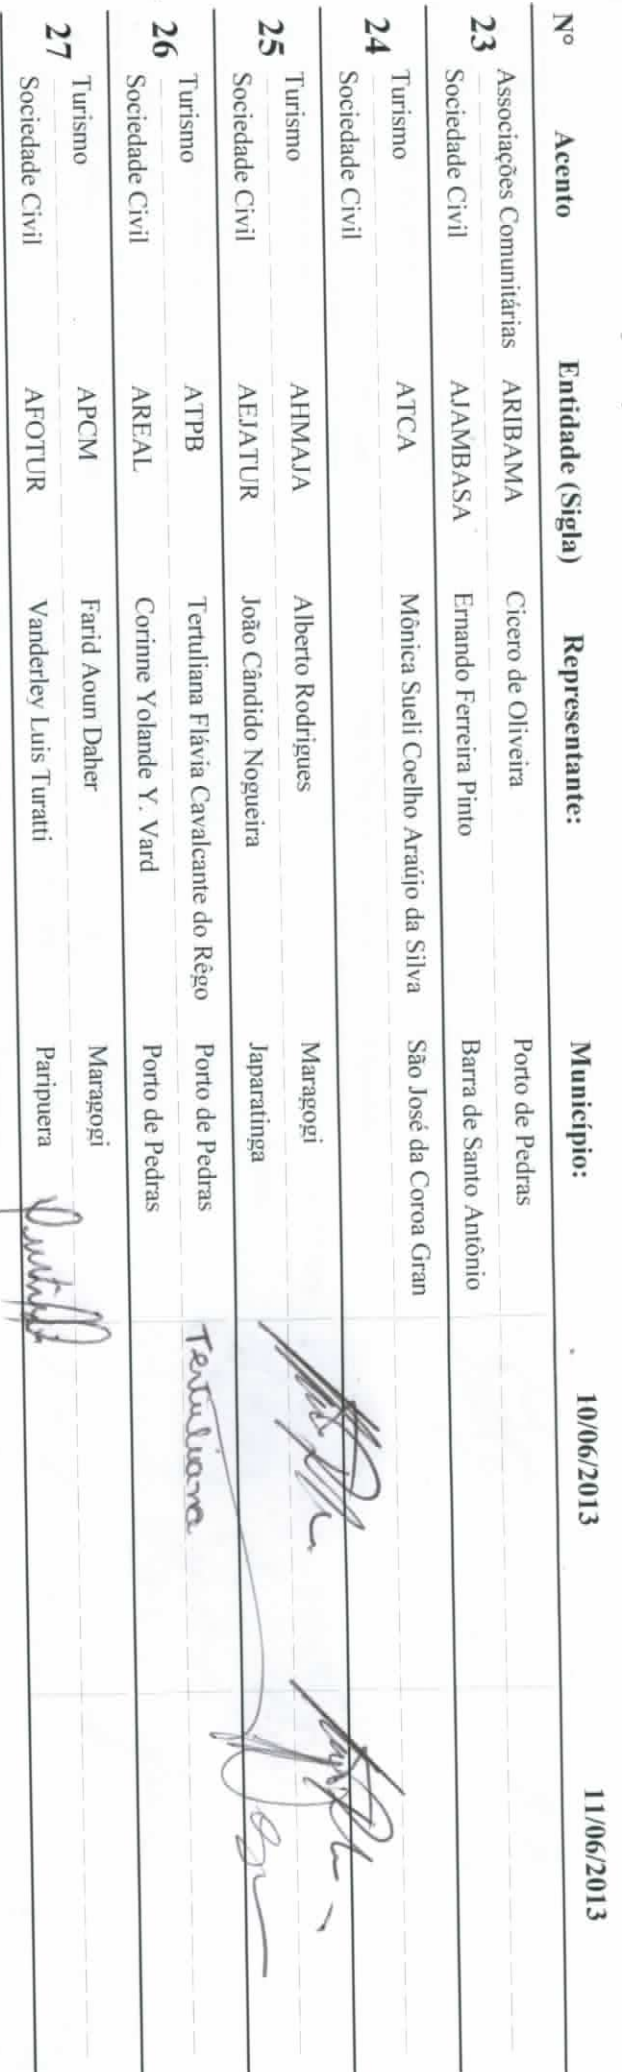 Nº Acento Entidade (Sigla) Representante: Município: 10/06/2013 11/06/2013
Associações Comunitárias ARIBAMA Cicero de Oliveira Porto de Pedras
23 Sociedade Civil AJAMBASA Ernando Ferreira Pinto Barra de Santo Antônio
Turismo ATCA Mônica Sueli Coelho Araújo da Silva São José da Coroa Gran
24 Sociedade Civil
Turismo AHMAJA Alberto Rodrigues Maragogi
25 Sociedade Civil AEJATUR João Cândido Nogueira Japaratinga
Turismo ATPB Tertuliana Flávia Cavalcante do Rêgo Porto de Pedras Tertuliana
26 Sociedade Civil AREAL Corinne Yolande Y. Vard Porto de Pedras
Turismo APCM Farid Aoun Daher Maragogi
27 Sociedade Civil AFOTUR Vanderley Luis Turatti Paripuera